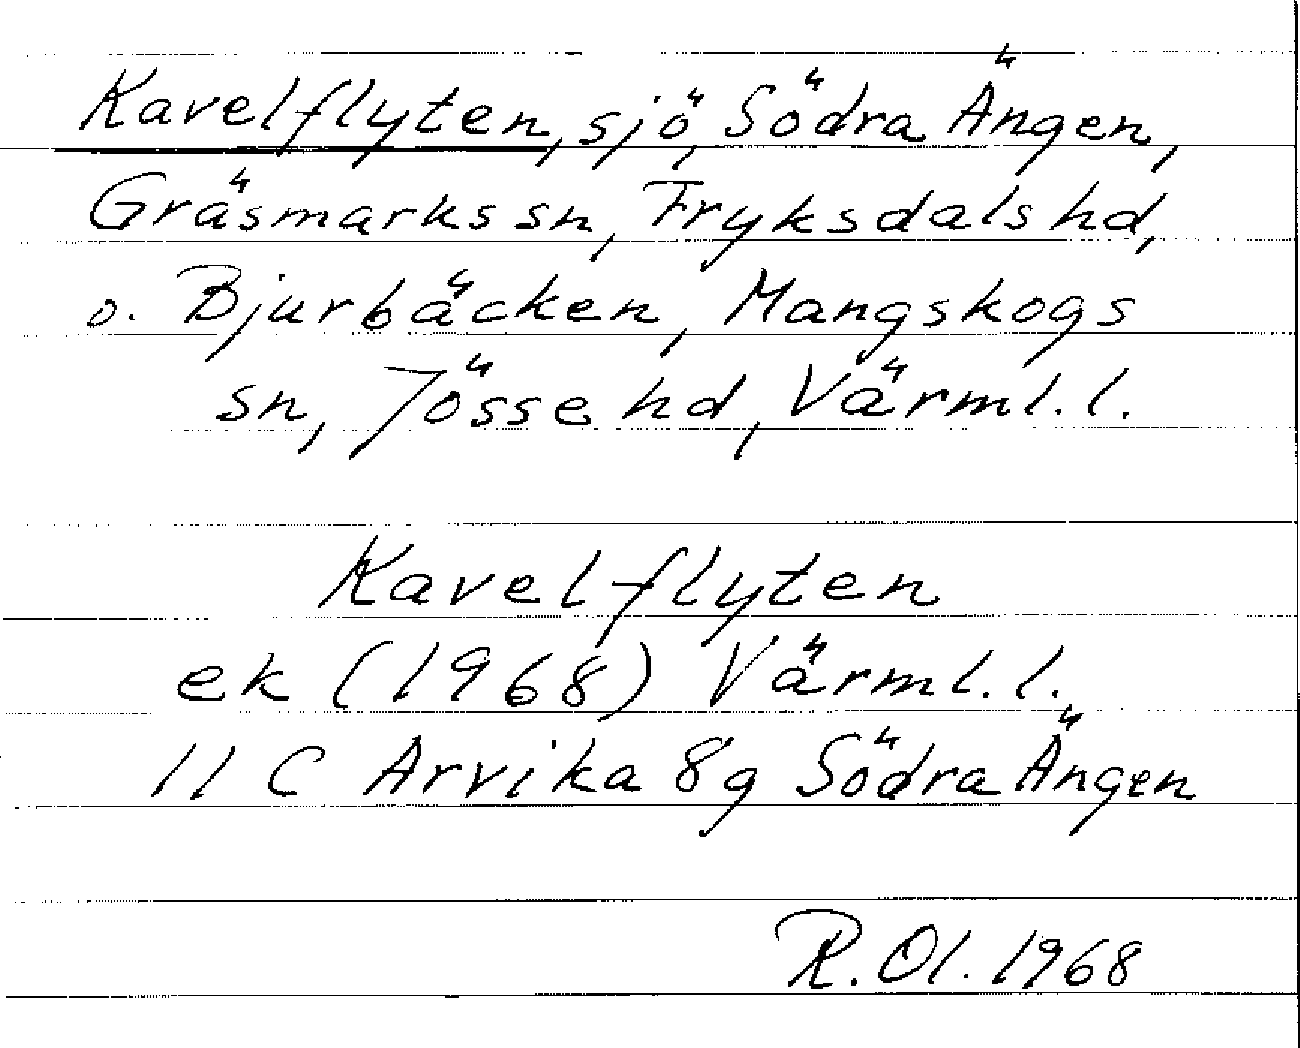 Kavelflyten, sjö, Södra Ängen,
Gräsmarks sn, Fryksdals hd,
o. Bjurbäcken, Mangskogs
sn, Jösse hd, Värml. l.
Kavelflyten
ek (1968) Värml. l.
11 C Arvika 8g Södra Ängen
R. Ol. 1968